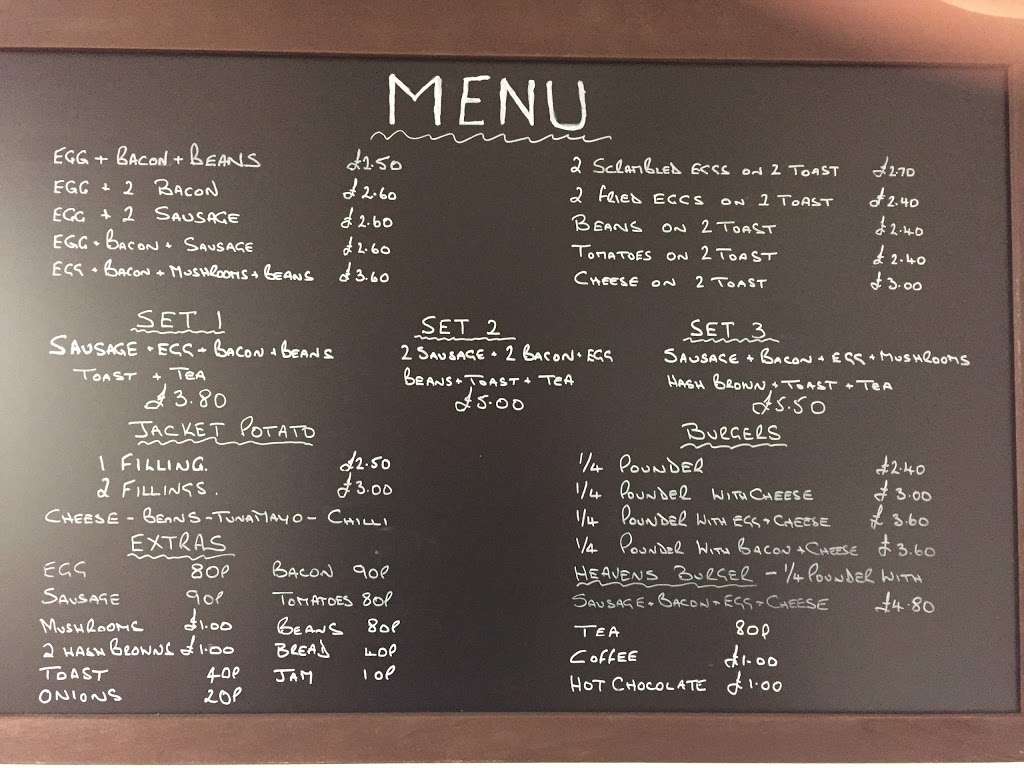 MENU
EGG + BACON + BEANS £2.50
EGG + 2 BACON £2.60
EGG + 2 SAUSAGE £2.60
EGG + BACON + SAUSAGE £2.60
EGG + BACON + MUSHROOMS + BEANS £3.60
2 SCRAMBLED EGGS ON 2 TOAST £2.70
2 FRIED EGGS ON 2 TOAST £2.40
BEANS ON 2 TOAST £2.40
TOMATOES ON 2 TOAST £2.40
CHEESE ON 2 TOAST £3.00
SET 1
SAUSAGE + EGG + BACON + BEANS
TOAST + TEA
£3.80
SET 2
2 SAUSAGE + 2 BACON + EGG
BEANS + TOAST + TEA
£5.00
SET 3
SAUSAGE + BACON + EGG + MUSHROOMS
HASH BROWN + TOAST + TEA
£5.50
JACKET POTATO
1 FILLING. £2.50
2 FILLINGS. £3.00
CHEESE - BEANS - TUNAMAYO - CHILLI
EXTRAS
EGG 80P BACON 90P
SAUSAGE 90P TOMATOES 80P
MUSHROOMS £1.00 BEANS 80P
2 HASH BROWNS £1.00 BREAD 40P
TOAST 40P JAM 10P
ONIONS 20P
BURGERS
1/4 POUNDER £2.40
1/4 POUNDER WITH CHEESE £3.00
1/4 POUNDER WITH EGG + CHEESE £3.60
1/4 POUNDER WITH BACON + CHEESE £3.60
HEAVENS BURGER - 1/4 POUNDER WITH
SAUSAGE + BACON + EGG + CHEESE £4.80
TEA 80P
COFFEE £1.00
HOT CHOCOLATE £1.00